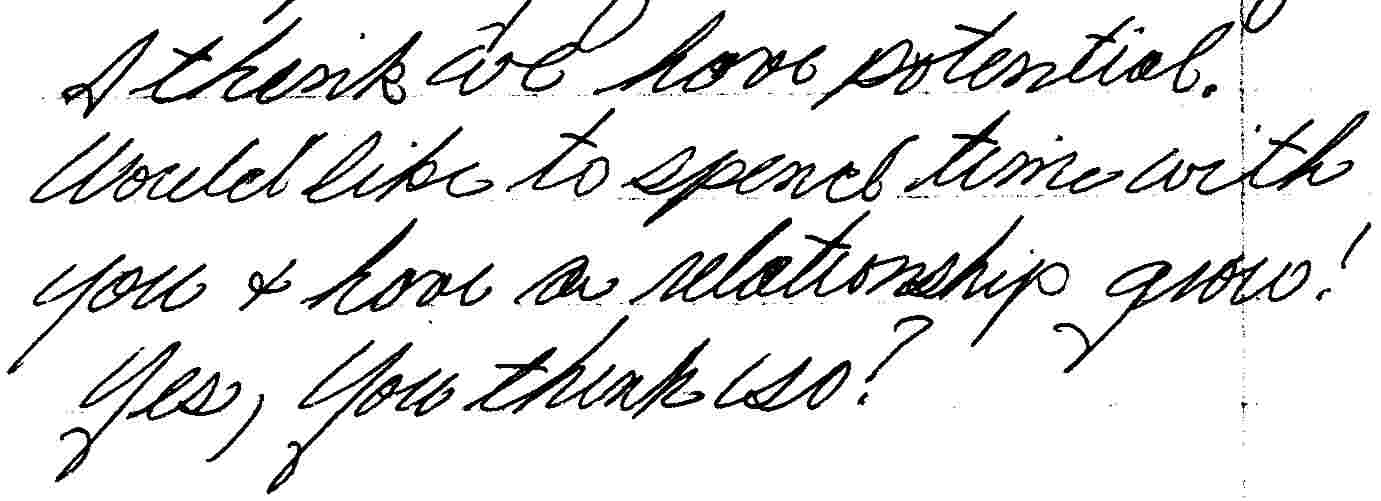 I think we have potential.
Would like to spend time with
you & have a relationship grow!
Yes, you think so?